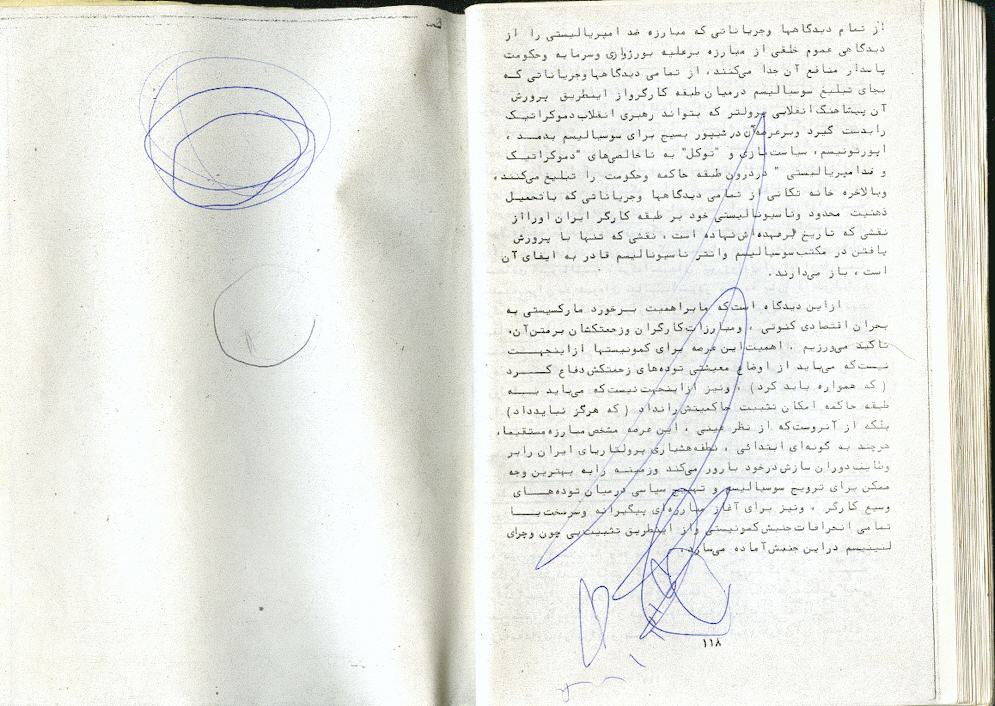 از تمام دیدگاهها وجریاناتی که مبارزه ضد امپریالیستی را از
دیدگاهی عموم خلقی از مبارزه برعلیه بورژوازی وسرمایه وحکومت
پاسدار منافع آن جدا می‌کنند، از تمامی دیدگاهها وجریاناتی کـه
بجای تبلیغ سوسیالیسم درمیان طبقه کارگرو از اینطریق پرورش
آن پیشاهنگ انقلابی پرولتر که بتواند رهبری انقلاب دموکراتیـک
را بدست گیرد وبرعرصه‌آن در شیپور بسیج برای سوسیالیسم بدمـد ،
اپورتونیسم، سیاست‌بازی و "توکل" به ناخالصی‌های "دموکراتیـک
و ضدامپریالیستی " دردرون طبقه حاکمه وحکومت را تبلیغ می‌کنند،
وبالاخره خانه تکانی از تمامی دیدگاهها وجریاناتی که باتحمیل
ذهنیت محدود وناسیونالیستی خود بر طبقه کارگر ایران اورااز
نقشی که تاریخ برعهده‌اش نهاده است ، نقشی که تنها با پرورش
یافتن در مکتب سوسیالیسم وانتر ناسیونالیسم قادر به ایفای آن
است ، باز می‌دارند .
ازاین دیدگاه است‌که مابراهمیت برخورد مارکسیستی به
بحران اقتصادی کنونی ، ومبارزات کارگران وزحمتکشان برمتن‌آن،
تاکید می‌ورزیم . اهمیت‌این عرصه برای کمونیستها ازاینجهــت
نیست‌که می‌باید از اوضاع معیشتی توده‌های زحمتکش دفاع کـــرد
( که همواره باید کرد) ، ونیز ازاینجهت نیست‌که می‌باید بــه
طبقه حاکمه امکان تثبیت حاکمیتش‌راداد ( که هرگز نبایدداد)
بلکه از آنروست‌که از نظر عینی ، این عرصه مشخص مبارزه مستقیما،
هرچند به گونه‌ای ابتدائی ، نطفه هشیاری پرولتاریای ایران رابر
وظایف دوران سازش درخود بارور می‌کند وزمینــه رابه بهترین وجه
ممکن برای ترویج سوسیالیسم و تهییج سیاسی درمیان توده‌هــای
وسیع کارگر ، ونیز برای آغاز مبارزه‌ای پیگیرانه وسرسخت بــا
تمامی انحرافات جنبش کمونیستی واز اینطریق تثبیت بی چون وچرای
لنینیسم دراین جنبش آماده می‌سازد.
۱۱۸